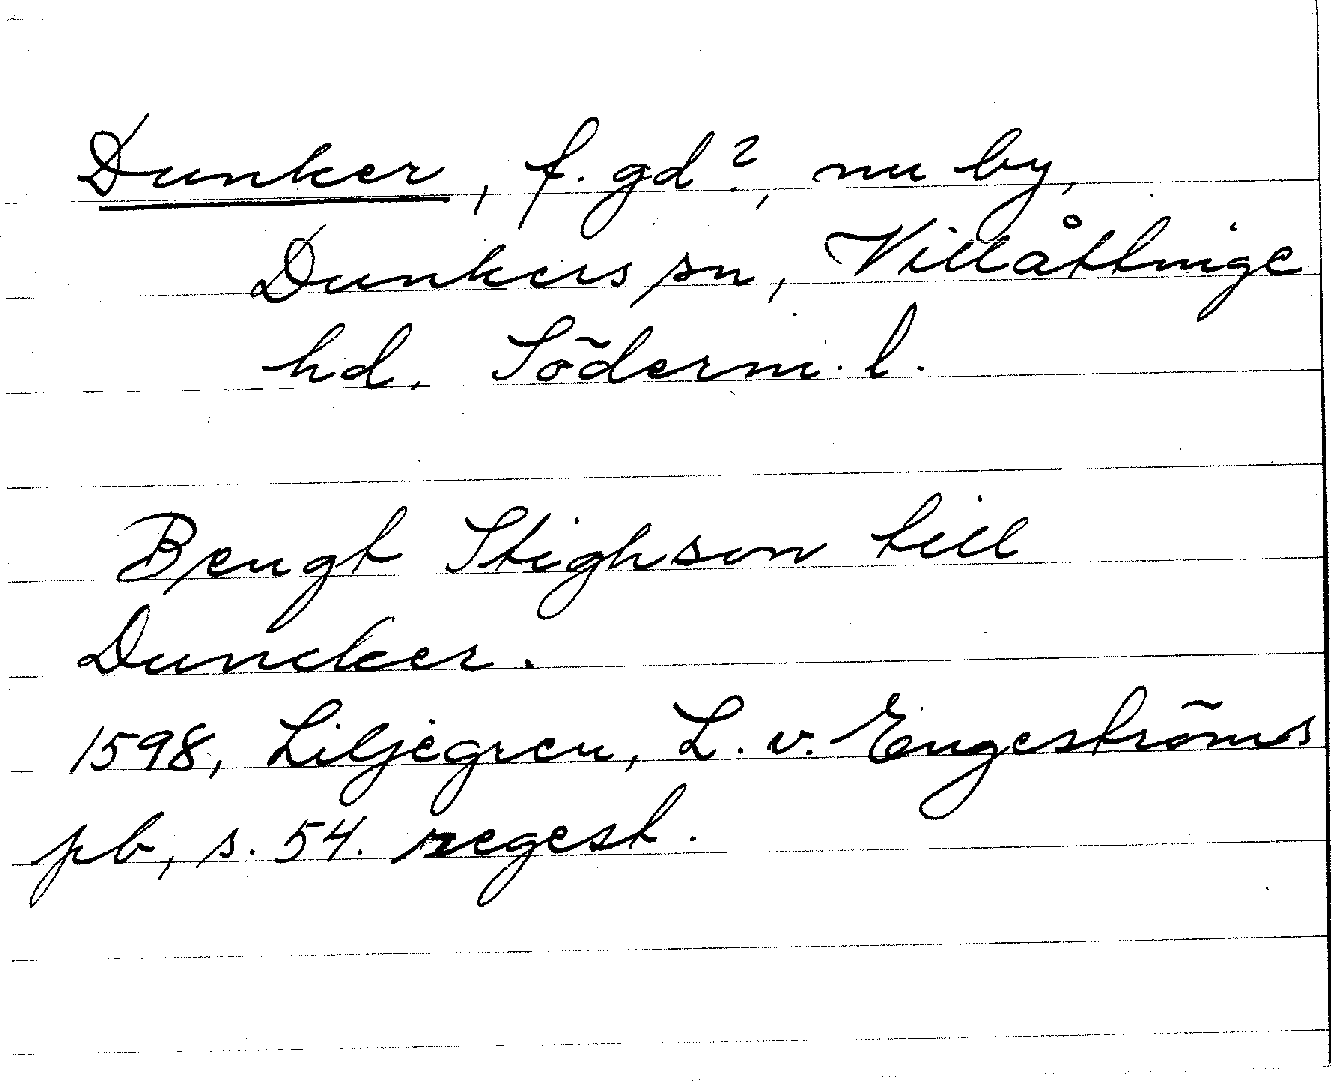 Dunker, f. gd?, nu by,
Dunkers sn, Villåttinge
hd. Söderm. l.
Bengt Stighson till
Duncker.
1598, Liljegren, L. v. Engeströms
pb, s. 54. regest.